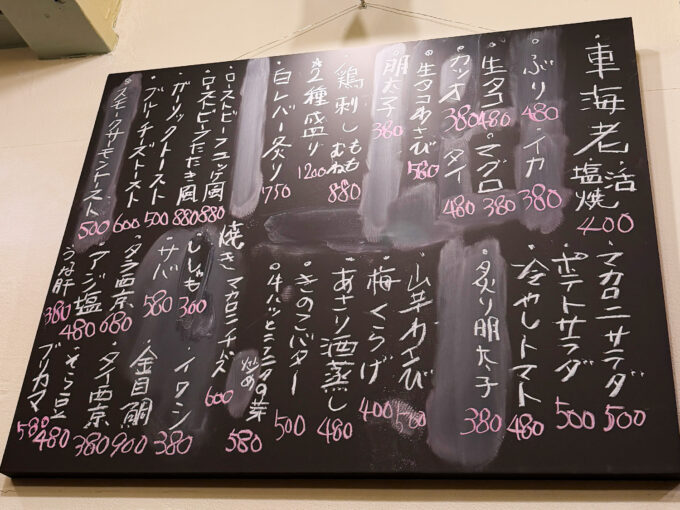 車海老 活 塩焼 400
・ぶり 480
・イカ 380
・生タコ 480
・マグロ 380
・カツオ 380
・タイ 480
・生タコわさび 580
・明太子 380
鶏刺し もも むね 880
・2種盛り 1200
・白レバー炙り 750
・ローストビーフユッケ風 880
ローストビーフたたき風 880
・ガーリックトースト 500
・ブルーチーズトースト 600
・スモークサーモントースト 500
・マカロニサラダ 500
・ポテトサラダ 500
・冷やしトマト 480
・炙り明太子 380
・山芋わさび 500
・梅くらげ 400
・あさり酒蒸し 480
・きのこバター 500
・牛ハツとニンニクの芽炒め 580
焼きマカロンチーズ 600
・ししゃも 300
・イワシ 380
・サバ 580
・金目鯛 900
・タラ西京 680
・タイ西京 380
・アジ塩 480
・そら豆 480
うなぎ肝 380
ブリカマ 580